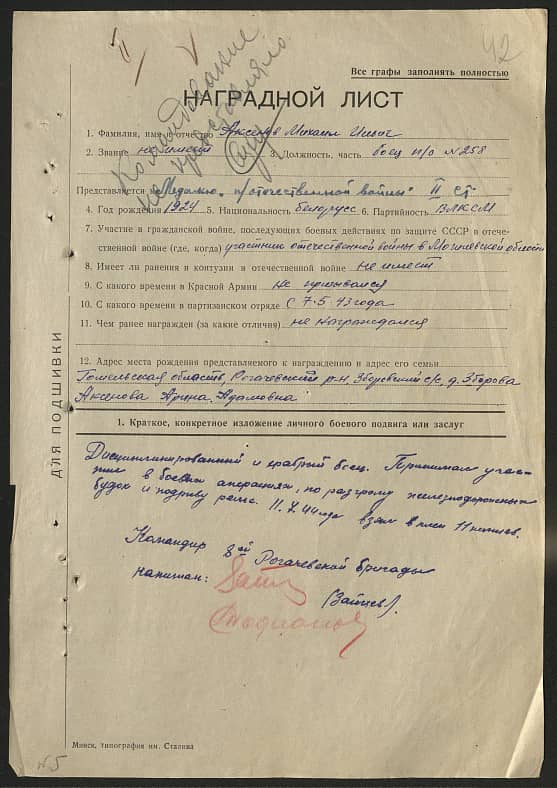 42
Все графы заполнять полностью
Командование
не представляло
НАГРАДНОЙ ЛИСТ
1. Фамилия, имя и отчество Аксенов Михаил Ильич
2. Звание не имеет 3. Должность, часть боец п/о №258
Представляется к Медалью "п/отечественной войны" II ст.
4. Год рождения 1924 5. Национальность белорусс 6. Партийность ВЛКСМ
7. Участие в гражданской войне, последующих боевых действиях по защите СССР в отече-
ственной войне (где, когда) участник отечественной войны в Могилевской области
8. Имеет ли ранения и контузии в отечественной войне не имеет
9. С какого времени в Красной Армии не призывался
10. С какого времени в партизанском отряде с 7.5.43 года
11. Чем ранее награжден (за какие отличия) не награждался
12. Адрес места рождения представляемого к награждению и адрес его семьи
Гомельская область, Рогачевский р-н, Зборовский с/с, д. Зборова
Аксенова Арина Адамовна
1. Краткое, конкретное изложение личного боевого подвига или заслуг
Дисциплинированный и храбрый боец. Принимал учас-
тие в боевых операциях, по разгрому железнодорожных
будок и подрыву рельс. взял в плен 11 немцев.
Командир 8ой Рогачевской бригады
капитан: (Зайцев).
ДЛЯ ПОДШИВКИ
Минск, типография им. Сталина
№5